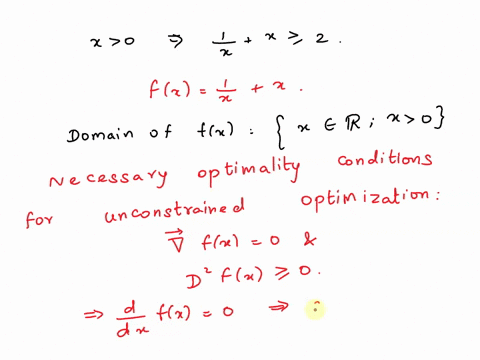 x > 0 ⇒ 1/x + x ≥ 2.
f(x) = 1/x + x.
Domain of f(x) : { x ∈ ℝ ; x > 0 }
Necessary optimality conditions
for unconstrained optimization:
∇⃗ f(x) = 0 &
D² f(x) ≥ 0.
⇒ d/dx f(x) = 0 ⇒